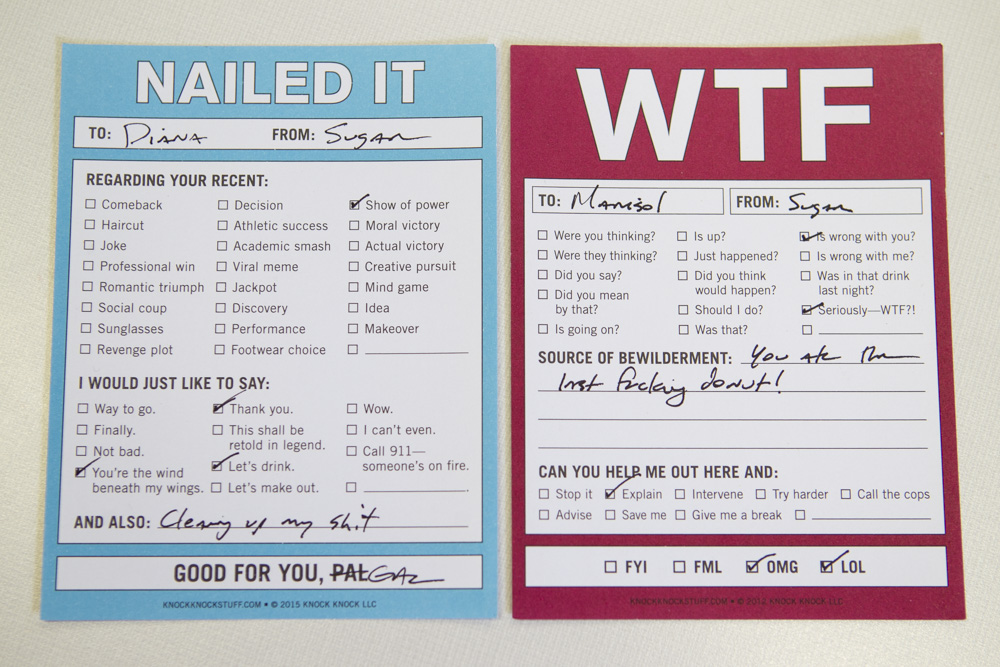 NAILED IT
TO: Diana FROM: Sugar
REGARDING YOUR RECENT:
Comeback Decision Show of power
Haircut Athletic success Moral victory
Joke Academic smash Actual victory
Professional win Viral meme Creative pursuit
Romantic triumph Jackpot Mind game
Social coup Discovery Idea
Sunglasses Performance Makeover
Revenge plot Footwear choice
I WOULD JUST LIKE TO SAY:
Way to go. Thank you. Wow.
Finally. This shall be retold in legend. I can't even.
Not bad. Call 911—someone's on fire.
You're the wind beneath my wings. Let's drink.
Let's make out.
AND ALSO: Cleaning up my shit
GOOD FOR YOU, PAL Gal
KNOCKKNOCKSTUFF.COM • © 2015 KNOCK KNOCK LLC
WTF
TO: Marisol FROM: Sugar
Were you thinking? Is up? Is wrong with you?
Were they thinking? Just happened? Is wrong with me?
Did you say? Did you think would happen? Was in that drink last night?
Did you mean by that? Should I do? Seriously—WTF?!
Is going on? Was that?
SOURCE OF BEWILDERMENT: You ate the
last fucking donut!
CAN YOU HELP ME OUT HERE AND:
Stop it Explain Intervene Try harder Call the cops
Advise Save me Give me a break
FYI FML OMG LOL
KNOCKKNOCKSTUFF.COM • © 2012 KNOCK KNOCK LLC